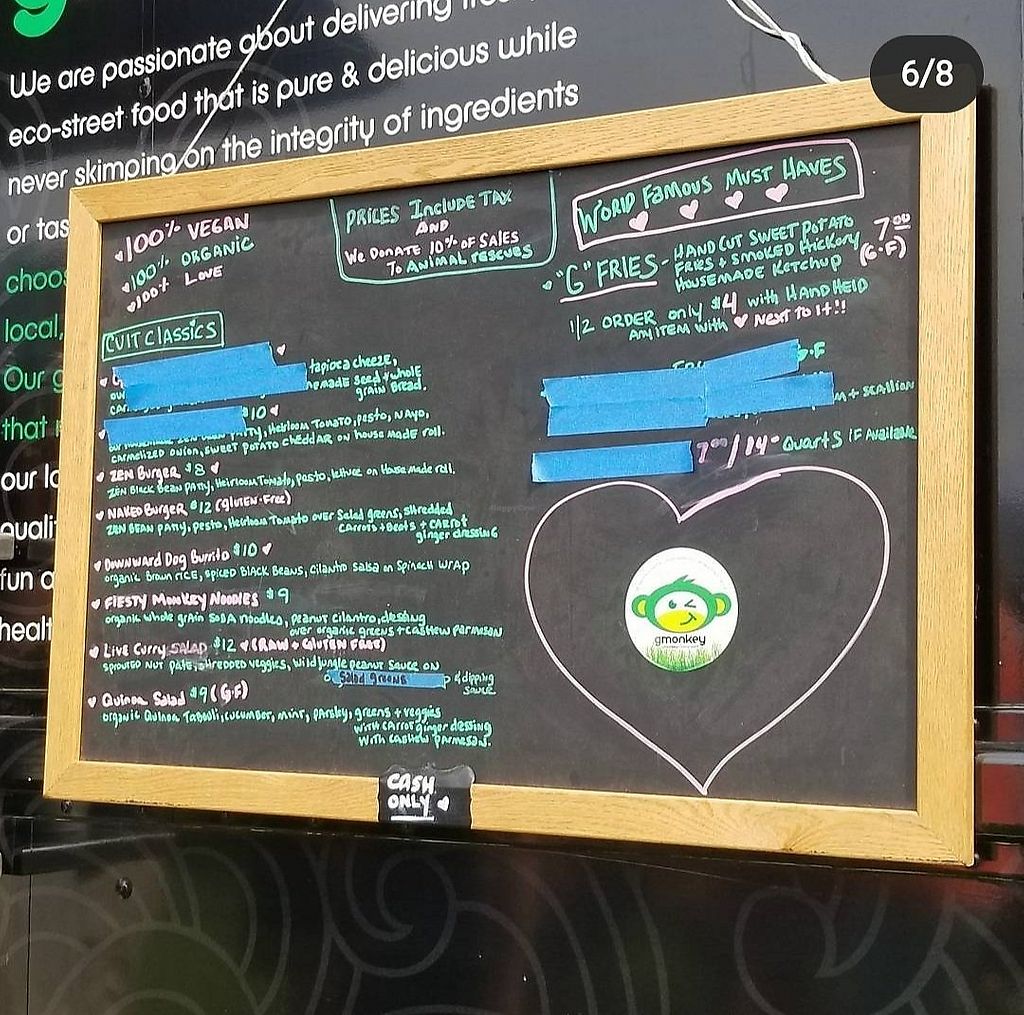 6/8
We are passionate about delivering
eco-street food that is pure & delicious while
never skimping on the integrity of ingredients
or tas
choo
local,
Our g
that
our lo
quali
fun a
healt
100% VEGAN
100% ORGANIC
100% LOVE
PRICES Include TAX
AND
We DONATE 10% OF SALES
To ANIMAL rescues
WORLD FAMOUS MUST HAVES
"G" FRIES - HAND CUT SWEET POTATO 7.00
FRIES + SMOKED HICKORY (G.F)
HOUSEMADE KETCHUP
1/2 ORDER only $4 with HANDHELD
ANY ITEM with ♥ NEXT TO IT!!
CULT CLASSICS
tapioca cheeze,
made seed + whole
grain Bread.
$10
PATTY, Heirloom Tomato, pesto, NAYO,
carmelized onion, sweet potato cheddar on house made roll.
ZEN Burger $8 ♥
ZEN Black Bean Patty, Heirloom Tomato, pesto, lettuce on House made roll.
NAKED Burger $12 (gluten-Free)
ZEN BEAN Patty, pesto, Heirloom Tomato over Salad greens, shredded
carrots + beets + carrot
ginger dressing
Downward Dog Burrito $10 ♥
organic brown rice, spiced BLACK Beans, cilanto salsa on Spinach wrap
FIESTY MonKey NOODLES $9
organic whole grain SOBA noodles, peanut cilantro, dressing
over organic greens + cashew parmesan
Live Curry SALAD $12 ♥ (RAW + GLUTEN FREE)
sprouted nut paté, shredded veggies, wild jungle peanut sauce on
Salad greens & dipping
sauce
Quinoa Salad $9 (G.F)
organic Quinoa Tabouli, cucumber, mint, parsley, greens + veggies
with carrot ginger dressing
with cashew parmesan.
+ scallion
7.00/14- Quarts IF Available
gmonkey
CASH
ONLY ♥